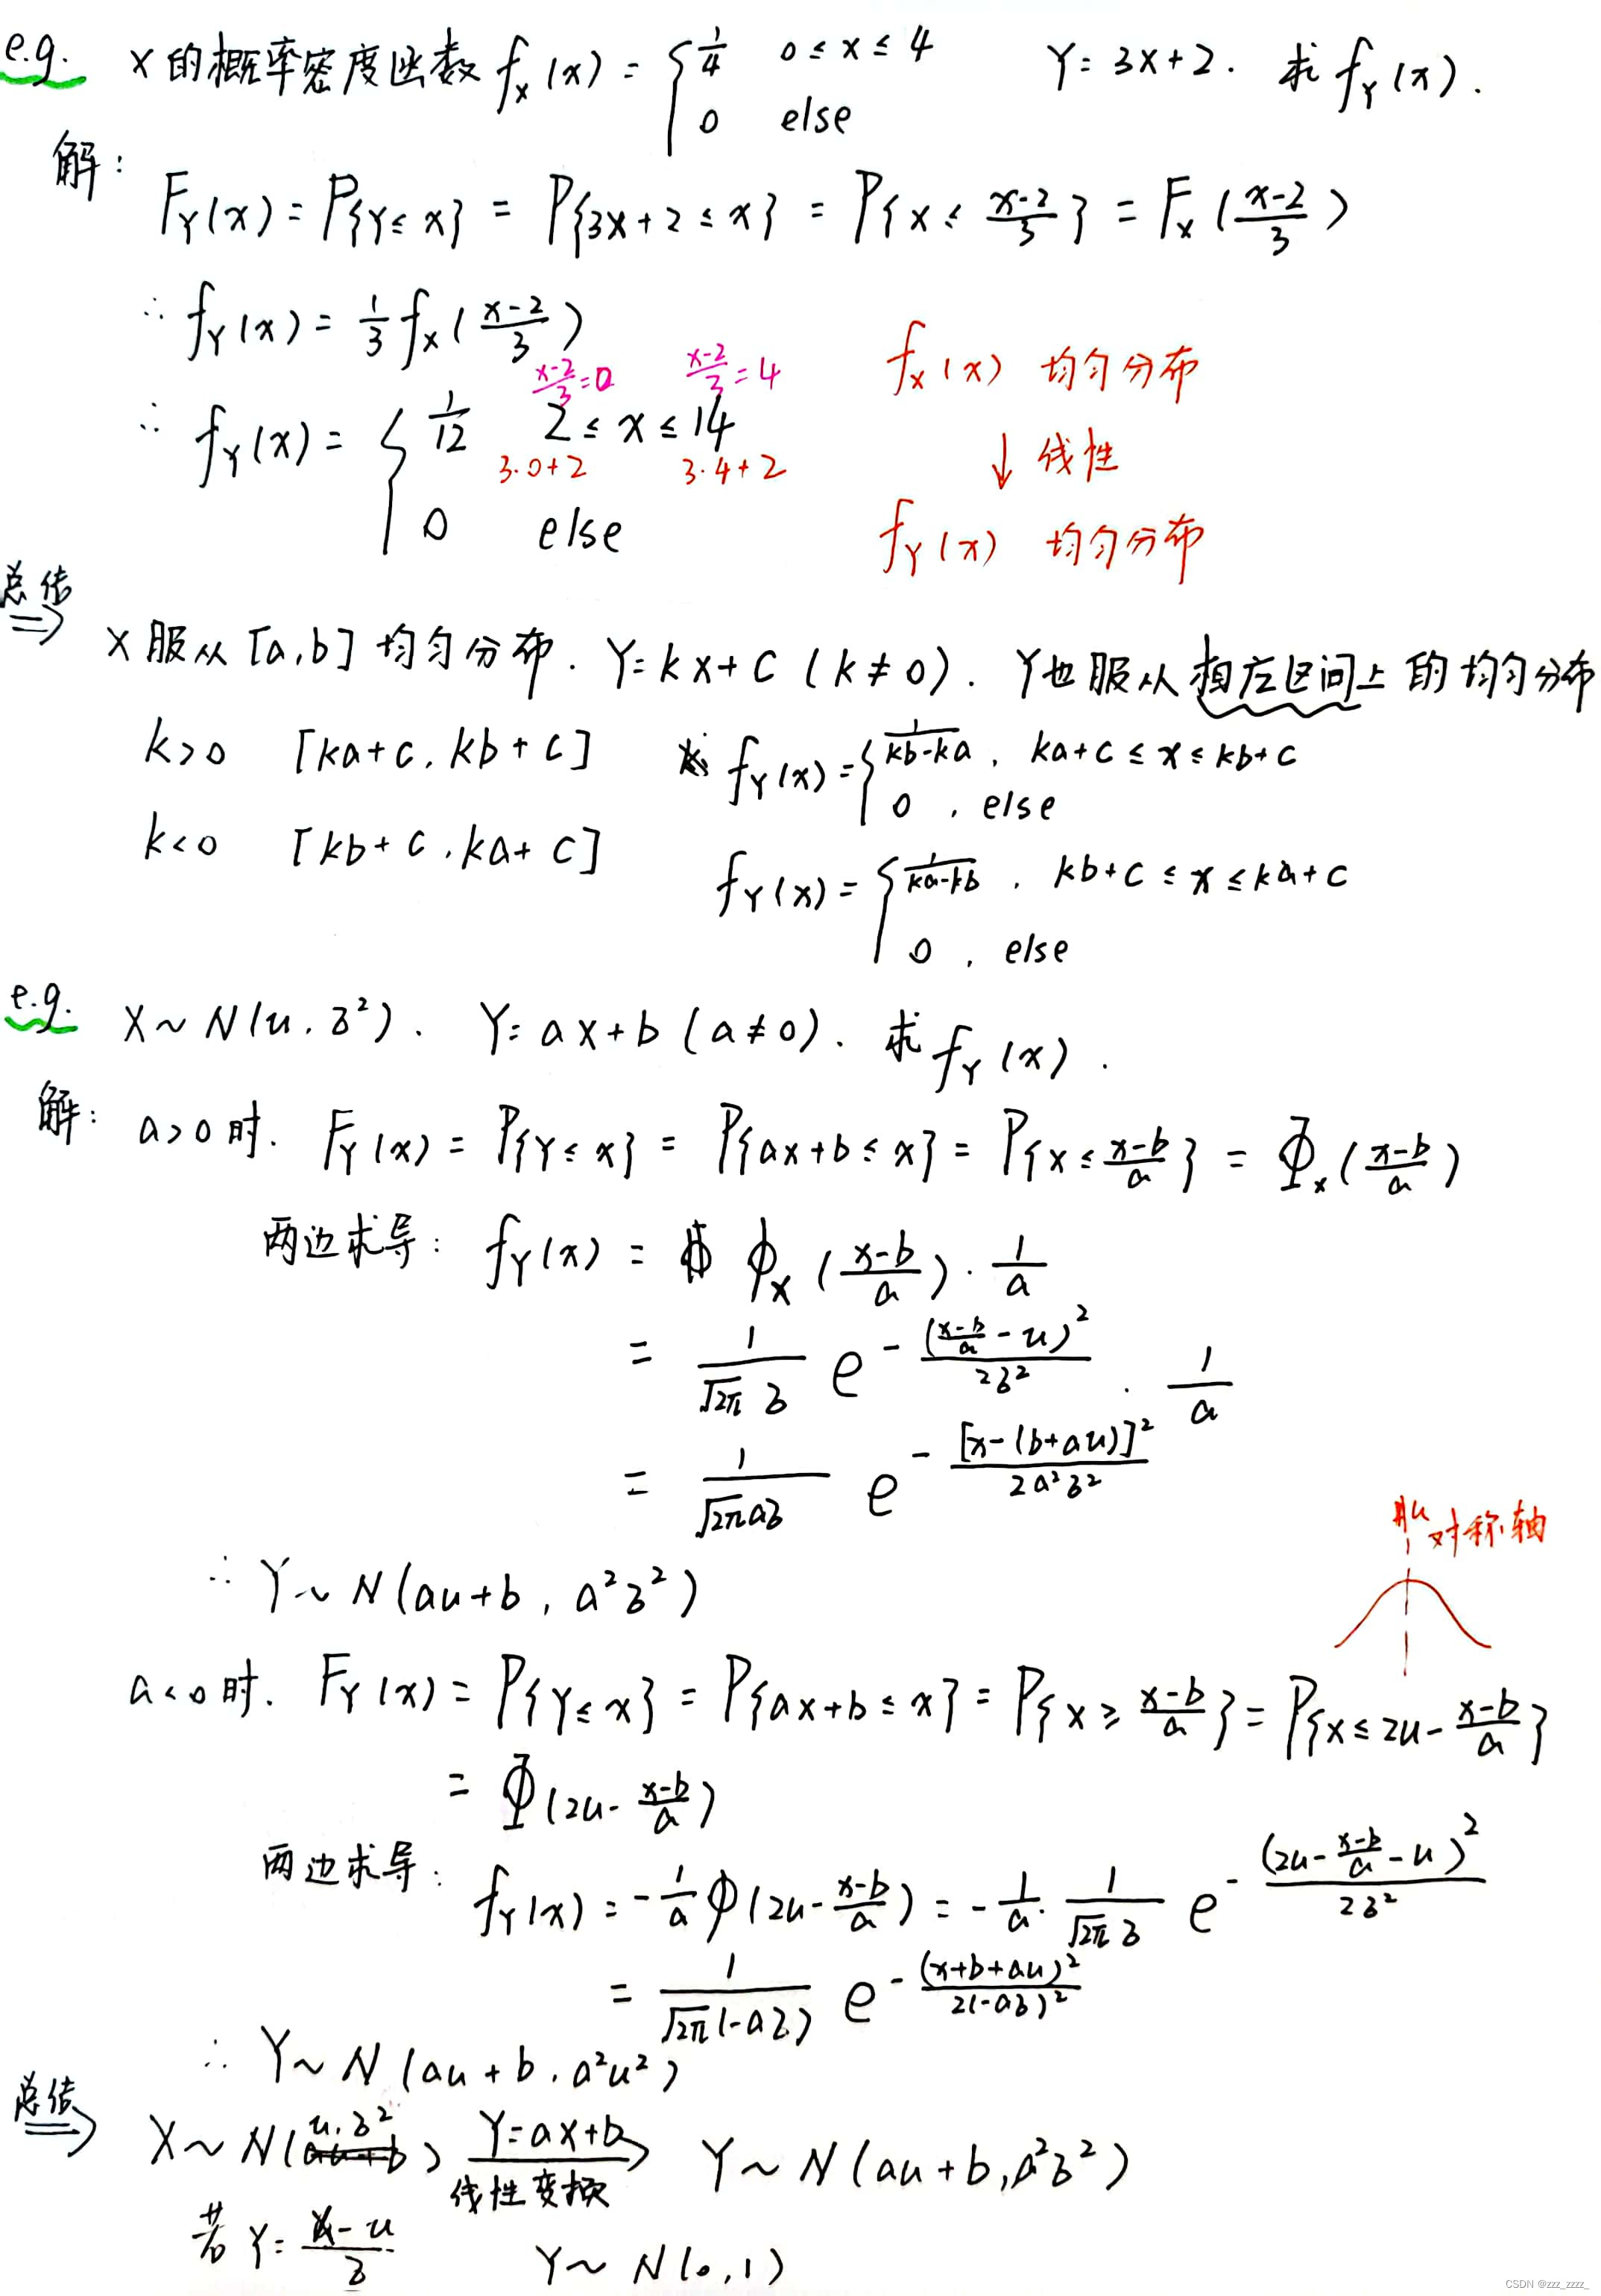 e.g. X的概率密度函数 f_X(x) = { 1/4 0≤x≤4 ; 0 else Y=3X+2. 求 f_Y(x).
解: F_Y(x) = P{Y≤x} = P{3X+2≤x} = P{X≤(x-2)/3} = F_X((x-2)/3)
∴ f_Y(x) = 1/3 f_X((x-2)/3)
(x-2)/3=0 (x-2)/3=4
∴ f_Y(x) = { 1/12 2≤x≤14 ; 0 else
3·0+2 3·4+2
f_X(x) 均匀分布
↓ 线性
f_Y(x) 均匀分布
总结 ⇒
X服从[a,b]均匀分布. Y=kX+C (k≠0). Y也服从相应区间上的均匀分布
k>0 [ka+c, kb+c] f_Y(x) = { 1/(kb-ka), ka+c≤x≤kb+c ; 0, else
k<0 [kb+c, ka+c] f_Y(x) = { 1/(ka-kb), kb+c≤x≤ka+c ; 0, else
e.g. X~N(u, δ²). Y=aX+b (a≠0). 求 f_Y(x).
解: a>0时. F_Y(x) = P{Y≤x} = P{aX+b≤x} = P{X≤(x-b)/a} = Φ_X((x-b)/a)
两边求导: f_Y(x) = φ_X((x-b)/a)·1/a
= 1/(√2π δ) e^-(((x-b)/a-u)²/(2δ²)) · 1/a
= 1/(√2π aδ) e^-([x-(b+au)]²/(2a²δ²))
∴ Y~N(au+b, a²δ²)
u 对称轴
a<0时. F_Y(x) = P{Y≤x} = P{aX+b≤x} = P{X≥(x-b)/a} = P{X≤2u-(x-b)/a}
= Φ(2u-(x-b)/a)
两边求导: f_Y(x) = -1/a φ(2u-(x-b)/a) = -1/a · 1/(√2π δ) e^-((2u-(x-b)/a-u)²/(2δ²))
= 1/(√2π(-aδ)) e^-((x+b+au)²/(2(-aδ)²))
∴ Y~N(au+b, a²u²)
总结 ⇒
X~N(u, δ²) Y=aX+b 线性变换 → Y~N(au+b, a²δ²)
若 Y=(X-u)/δ Y~N(0,1)
CSDN @zzz_zzzz_